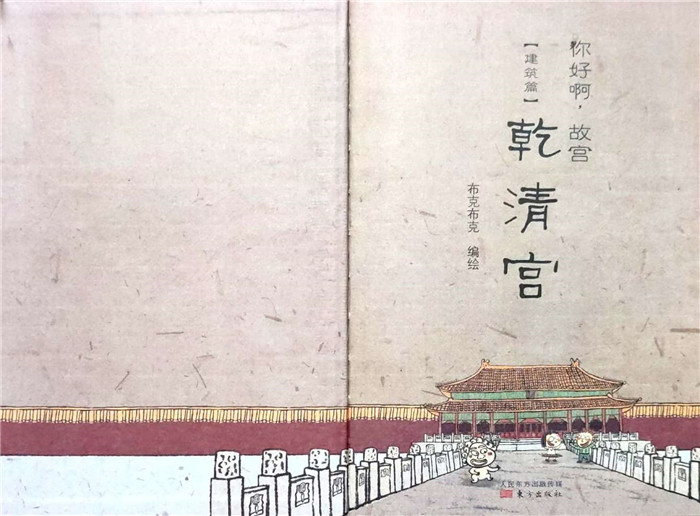 你好啊，故宫
【建筑篇】
乾清宫
布克布克 编绘
人民东方出版传媒
东方出版社